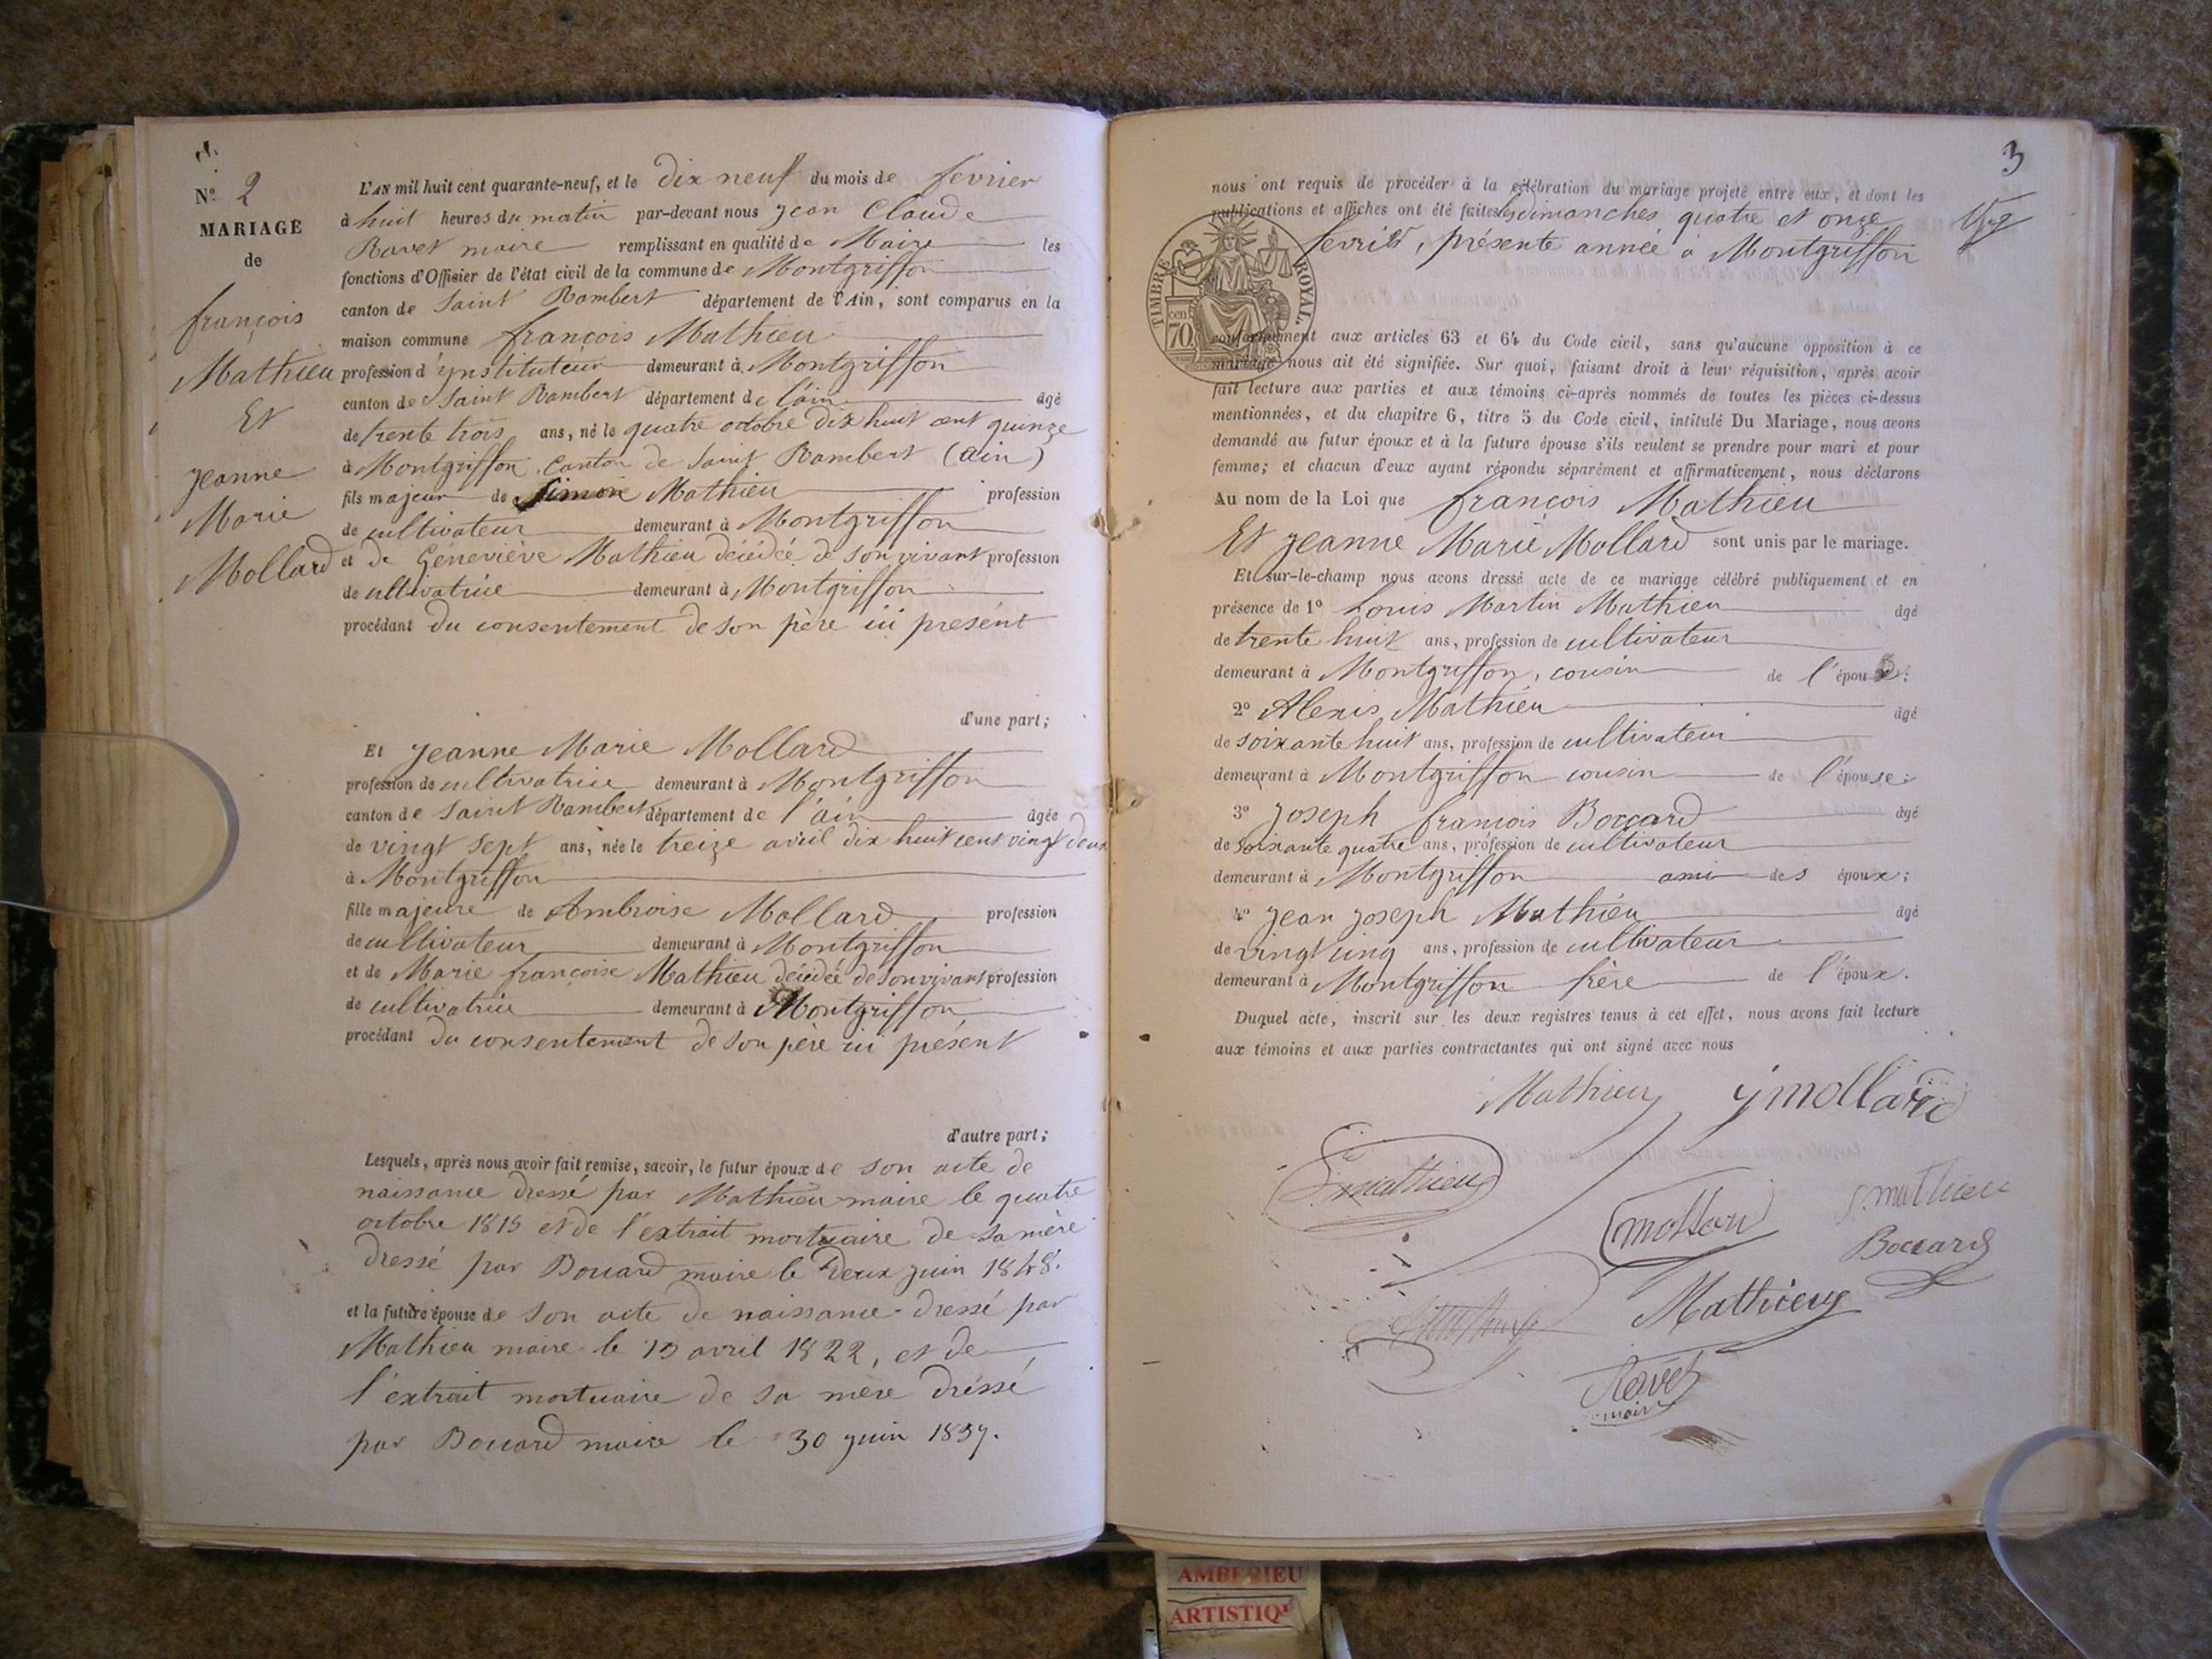 Nº 2
MARIAGE
de
françois
Mathieu
Et
jeanne
Marie
Mollard
L'AN mil huit cent quarante-neuf, et le dix neuf du mois de fevrier
à huit heures du matin par-devant nous jean Claude
Ravet maire remplissant en qualité de Maire les
fonctions d'Officier de l'état civil de la commune de Montgriffon
canton de Saint Rambert département de l'Ain, sont comparus en la
maison commune françois Mathieu
profession d'ynstituteur demeurant à Montgriffon
canton de Saint Rambert département de l'ain âgé
de trente trois ans, né le quatre octobre dix huit cent quinze
à Montgriffon, Canton de Saint Rambert (ain)
fils majeur de Simon Mathieu profession
de cultivateur demeurant à Montgriffon
et de Géneviève Mathieu décédée de son vivant profession
de cultivatrice demeurant à Montgriffon
procédant du consentement de son père ici présent
d'une part;
Et jeanne Marie Mollard
profession de cultivatrice demeurant à Montgriffon
canton de Saint Rambert département de l'ain âgée
de vingt sept ans, née le treize avril dix huit cent vingt deux
à Montgriffon
fille majeure de Ambroise Mollard profession
de cultivateur demeurant à Montgriffon
et de Marie françoise Mathieu décédée de son vivant profession
de cultivatrice demeurant à Montgriffon
procédant du consentement de son père ici présent
d'autre part;
Lesquels, après nous avoir fait remise, savoir, le futur époux de son acte de
naissance dressé par Mathieu maire le quatre
octobre 1815 et de l'extrait mortuaire de sa mère
dressé par Bouard maire le deux juin 1848.
et la future épouse de son acte de naissance dressé par
Mathieu maire le 13 avril 1822, et de
l'extrait mortuaire de sa mère dréssé
par Bouard maire le 30 juin 1837.
3
nous ont requis de procéder à la célébration du mariage projeté entre eux, et dont les
publications et affiches ont été faites les dimanches quatre et onze
fevrier, présente année à Montgriffon
TIMBRE ROYAL.
70 cen
conformément aux articles 63 et 64 du Code civil, sans qu'aucune opposition à ce
mariage nous ait été signifiée. Sur quoi, faisant droit à leur réquisition, après avoir
fait lecture aux parties et aux témoins ci-après nommés de toutes les pièces ci-dessus
mentionnées, et du chapitre 6, titre 5 du Code civil, intitulé Du Mariage, nous avons
demandé au futur époux et à la future épouse s'ils veulent se prendre pour mari et pour
femme; et chacun d'eux ayant répondu séparément et affirmativement, nous déclarons
Au nom de la Loi que françois Mathieu
Et jeanne Marie Mollard sont unis par le mariage.
Et sur-le-champ nous avons dressé acte de ce mariage célébré publiquement et en
présence de 1º Louis Martin Mathieu âgé
de trente huit ans, profession de cultivateur
demeurant à Montgriffon, cousin de l'époux;
2º Alexis Mathieu âgé
de soixante huit ans, profession de cultivateur
demeurant à Montgriffon cousin de l'épouse;
3º joseph françois Boccard âgé
de soixante quatre ans, profession de cultivateur
demeurant à Montgriffon ami des époux;
4º jean joseph Mathieu âgé
de vingt cinq ans, profession de cultivateur
demeurant à Montgriffon frère de l'époux.
Duquel acte, inscrit sur les deux registres tenus à cet effet, nous avons fait lecture
aux témoins et aux parties contractantes qui ont signé avec nous
Mathieu jmollard
mathieu
mollard
s. mathieu
Boccard
Mathieu
Ravet
maire
AMBERIEU
ARTISTIQ